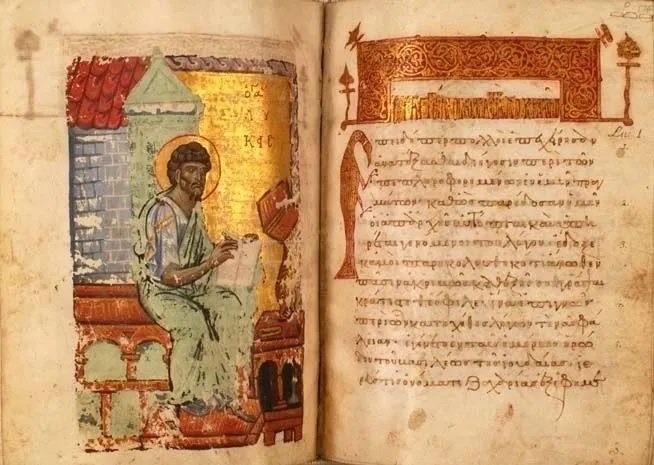 Ο Α
Λ Υ
ΚΑС
Luc. 1
Ἐπειδήπερ πολλοὶ ἐπεχείρησαν
ἀνατάξασθαι διήγησιν περὶ τῶν
πεπληροφορημένων ἐν ἡμῖν πραγ
μάτων καθὼς παρέδοσαν ἡμῖν 2.
οἱ ἀπ' ἀρχῆς αὐτόπται καὶ ὑπη
ρέται γενόμενοι τοῦ λόγου· ἔδοξε 3.
κἀμοὶ παρηκολουθηκότι ἄνωθεν
πᾶσιν ἀκριβῶς καθεξῆς σοι γράψαι
κράτιστε θεόφιλε· ἵνα ἐπιγνῷς
περὶ ὧν κατηχήθης λόγων τὴν ἀσφά
λειαν· ἐγένετο ἐν ταῖς ἡμέραις ἡρώ
δου τοῦ βασιλέως τῆς ἰουδαίας ἱε
ρεύς τις ὀνόματι Ζαχαρίας ἐξ ἐφημε